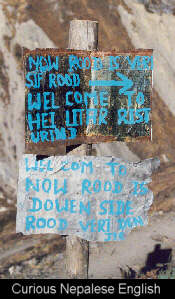 NOW ROOD IS VERI
SIF ROOD
WEL COME TO
HEI LITHR REST
WEL COM TO
NOW ROOD IS
DOWEN SIDE
ROOD VERI
Curious Nepalese English